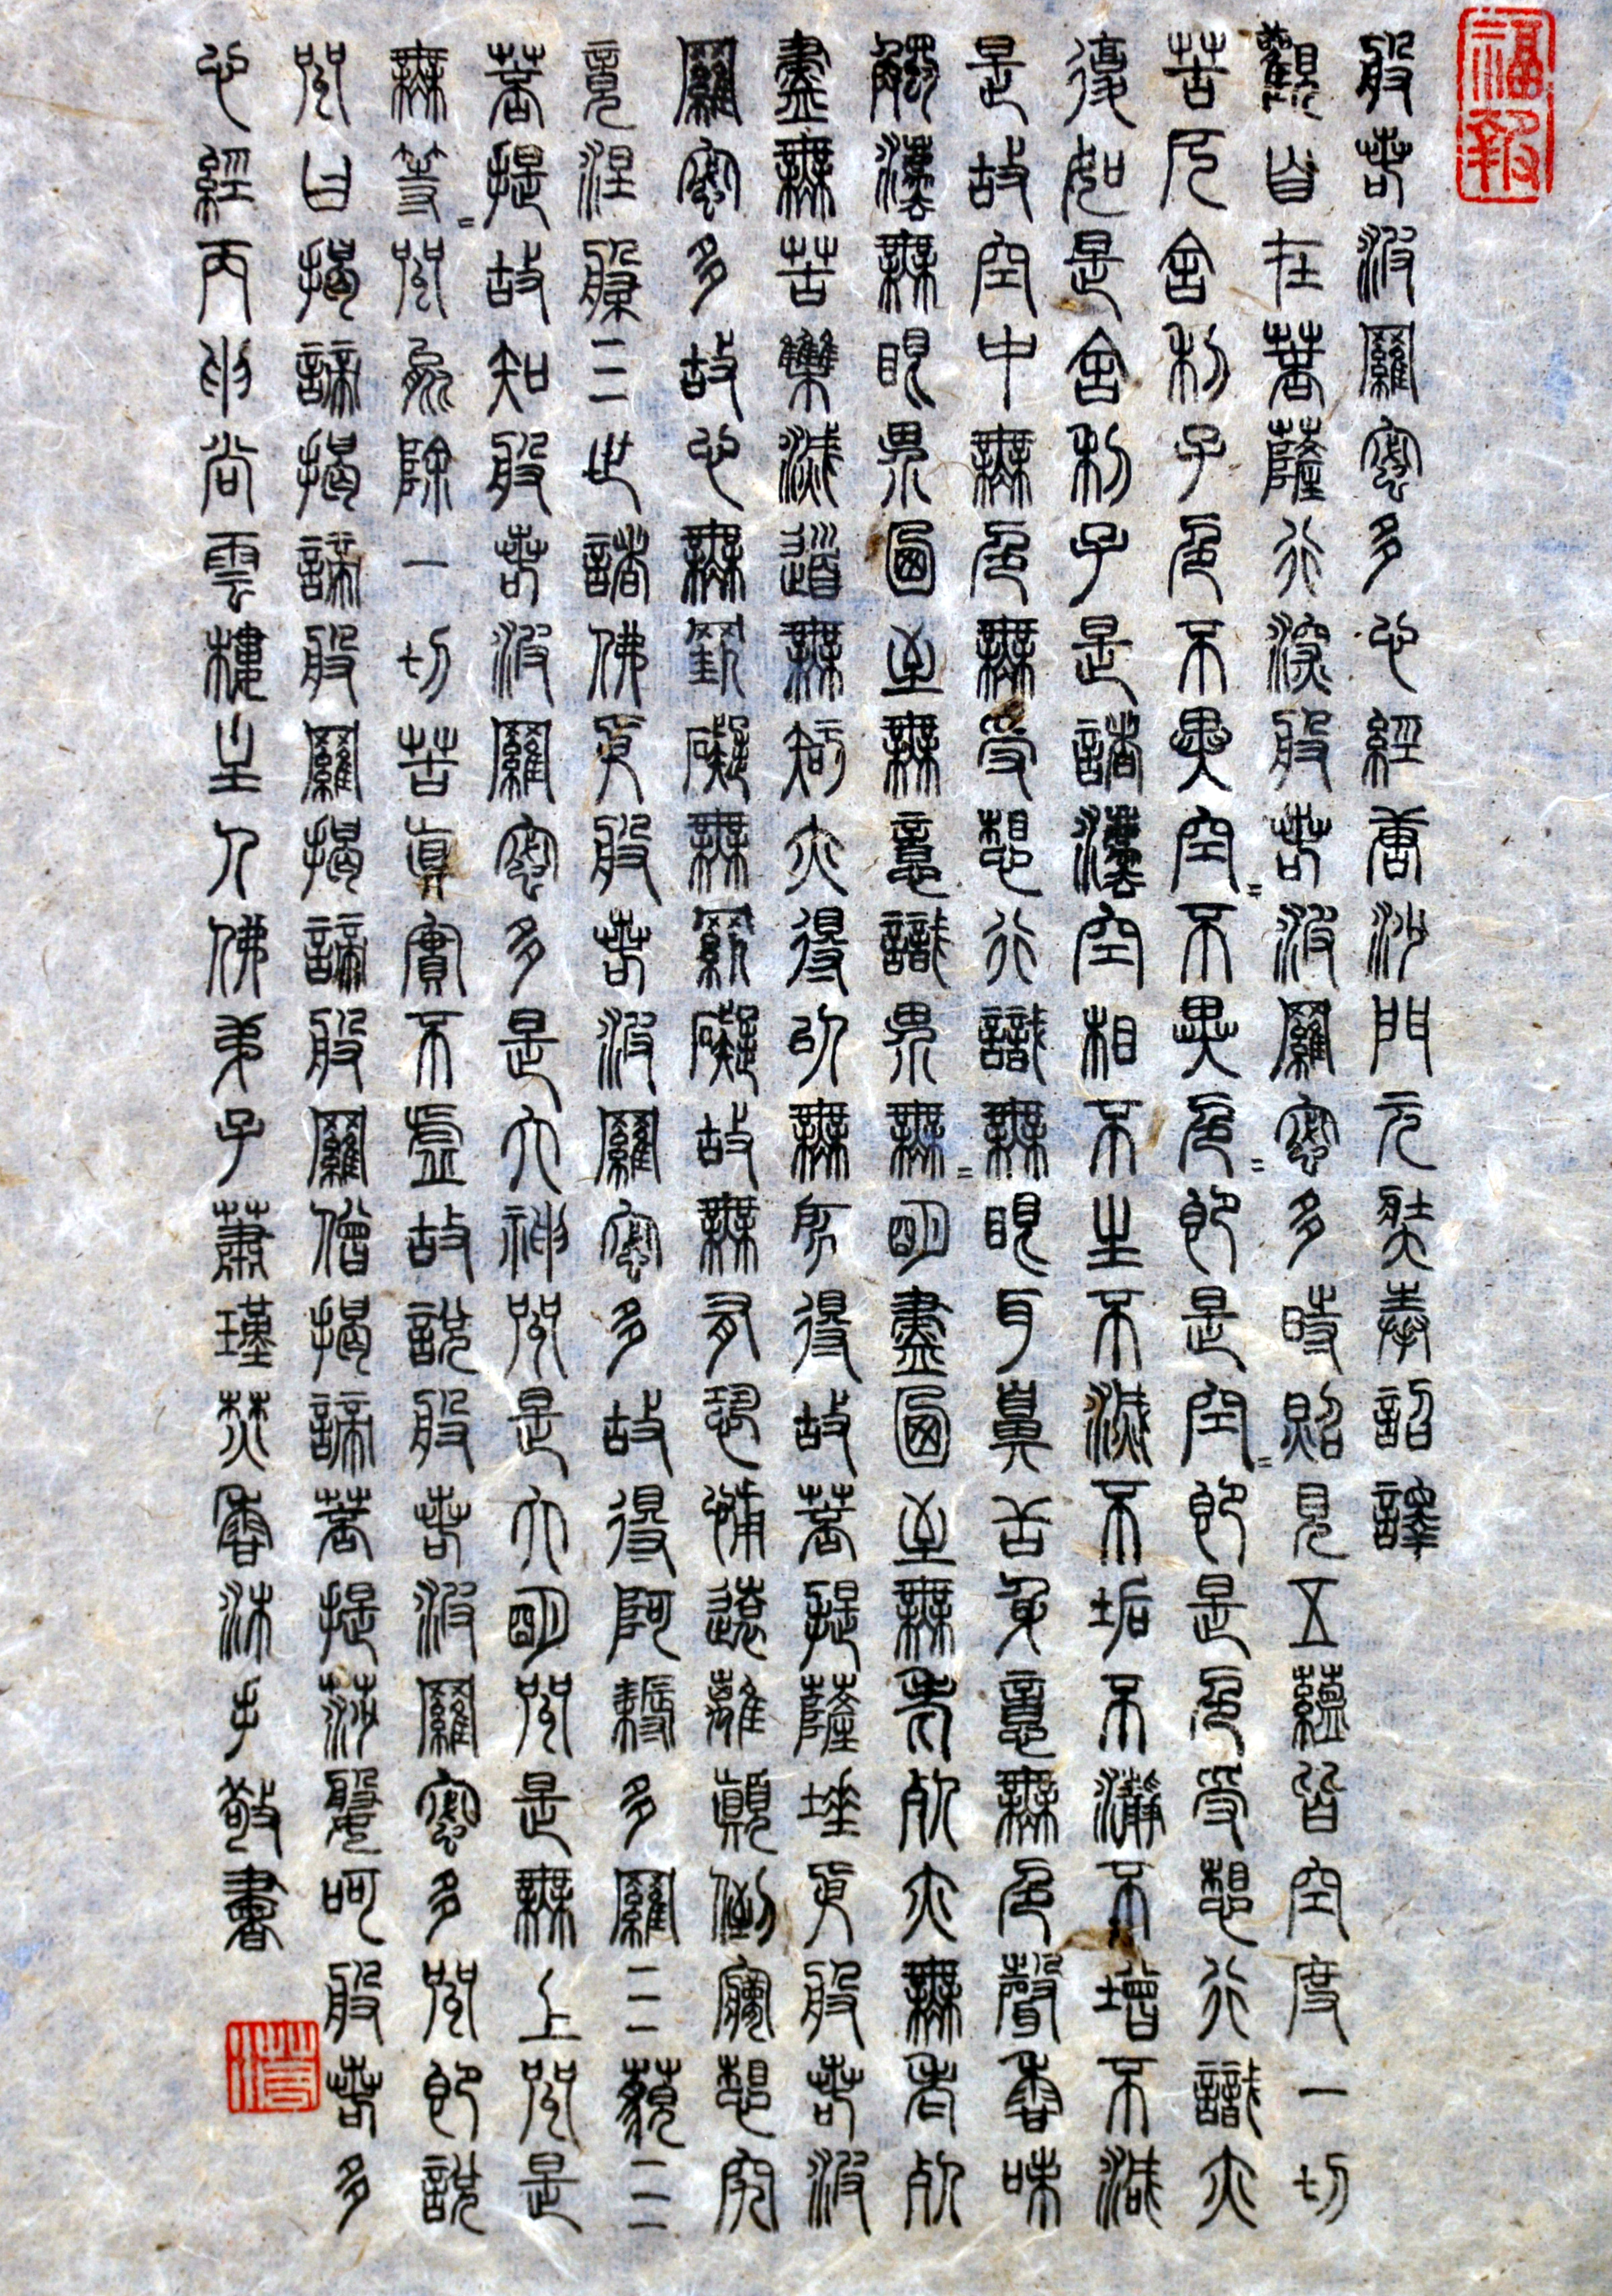 福報
般若波羅蜜多心經唐沙門元奘奉詔譯
觀自在菩薩行深般若波羅蜜多時照見五蘊皆空度一切
苦厄舍利子色不異空=不異色=即是空=即是色受想行識亦
復如是舍利子是諸法空相不生不滅不垢不淨不增不減
是故空中無色無受想行識無眼耳鼻舌身意無色聲香味
觸法無眼界乃至無意識界無=明盡乃至無老死亦無老死
盡無苦集滅道無智亦得以無所得故菩提薩埵依般若波
羅蜜多故心無罣礙無罣礙故無有恐怖遠離顛倒夢想究
竟涅槃三世諸佛依般若波羅蜜多故得阿耨多羅三藐三
菩提故知般若波羅蜜多是大神咒是大明咒是無上咒是
無等=咒能除一切苦真實不虛故說般若波羅蜜多咒即說
咒曰揭諦揭諦般羅揭諦般羅僧揭諦菩提莎婆呵般若多
心經丙申尚雲樓主人佛弟子蕭瑾焚香沐手敬書